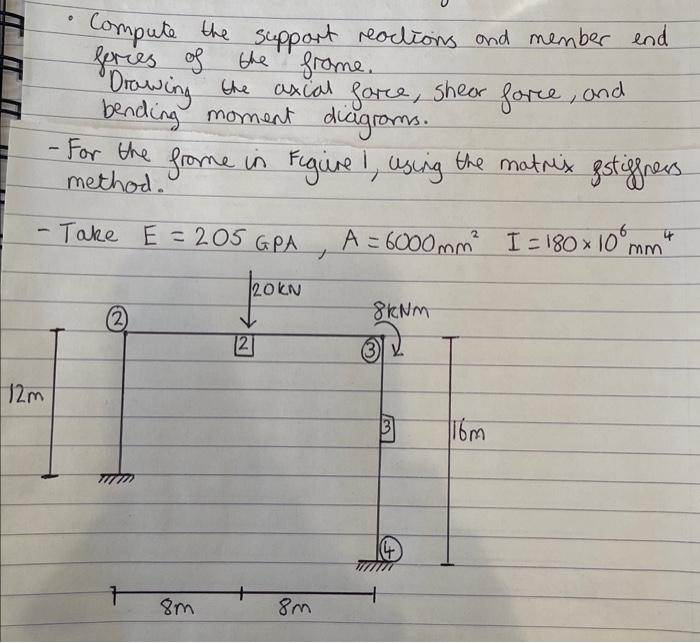 • Compute the support reactions and member end
forces of the frame.
Drawing the axial force, shear force, and
bending moment diagrams.
- For the frame in Figure 1, using the matrix stiffness
method.
- Take E = 205 GPA , A = 6000mm² I = 180 × 10⁶ mm⁴
20KN
8KNm
2
2
3
12m
3
16m
4
8m 8m